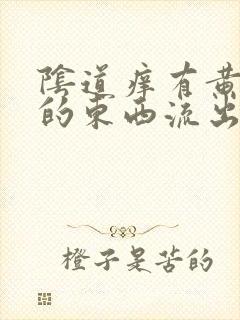 陰道痒有黄
的東西流出
橙子是苦的